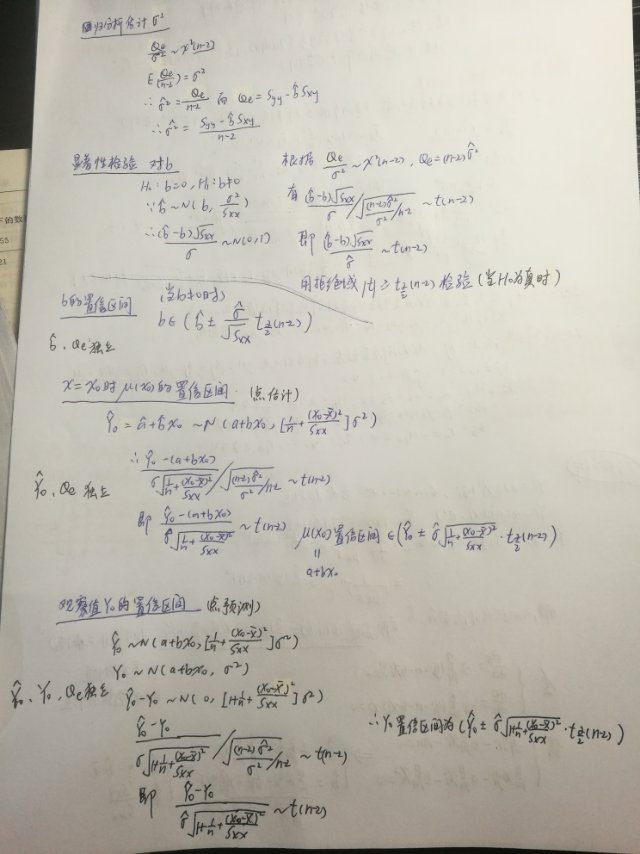 回归分析估计σ²
Qe/σ² ~ χ²(n-2)
E(Qe/(n-2)) = σ²
∴ σ̂² = Qe/(n-2) 而 Qe = Syy - b̂Sxy
∴ σ̂² = (Syy - b̂Sxy)/(n-2)
显著性检验 对b
H₀: b=0, H₁: b≠0
∵ b̂ ~ N(b, σ²/Sxx)
∴ (b̂-b)√Sxx/σ ~ N(0,1)
根据 Qe/σ² ~ χ²(n-2), Qe = (n-2)σ̂²
有 (b̂-b)√Sxx/σ / √((n-2)σ̂²/σ² / n-2) ~ t(n-2)
即 (b̂-b)√Sxx/σ̂ ~ t(n-2)
用拒绝域 |t| ≥ t_{α/2}(n-2) 检验 (当H₀为真时)
b的置信区间 (当b≠0时)
b∈(b̂ ± σ̂/√Sxx t_{α/2}(n-2))
b̂、Qe独立
x=x₀时 μ(x₀)的置信区间. (点估计)
Ŷ₀ = â+b̂x₀ ~ N(a+bx₀, [1/n + (x₀-x̄)²/Sxx]σ²)
∴ Ŷ₀-(a+bx₀) / σ√(1/n + (x₀-x̄)²/Sxx) / √((n-2)σ̂²/σ² / n-2) ~ t(n-2)
Ŷ₀、Qe 独立
即 Ŷ₀-(a+bx₀) / σ̂√(1/n + (x₀-x̄)²/Sxx) ~ t(n-2)
μ(x₀)置信区间 ∈(Ŷ₀ ± σ̂√(1/n + (x₀-x̄)²/Sxx) · t_{α/2}(n-2))
=
a+bx₀
观察值Y₀的置信区间 (点预测)
Ŷ₀ ~ N(a+bx₀, [1/n + (x₀-x̄)²/Sxx]σ²)
Y₀ ~ N(a+bx₀, σ²)
Ŷ₀、Y₀、Qe独立
Ŷ₀-Y₀ ~ N(0, [1+1/n + (x₀-x̄)²/Sxx]σ²)
Ŷ₀-Y₀ / σ√(1+1/n + (x₀-x̄)²/Sxx) / √((n-2)σ̂²/σ² / n-2) ~ t(n-2)
∴ Y₀置信区间为 (Ŷ₀ ± σ̂√(1+1/n + (x₀-x̄)²/Sxx) · t_{α/2}(n-2))
即 Ŷ₀-Y₀ / σ̂√(1+1/n + (x₀-x̄)²/Sxx) ~ t(n-2)